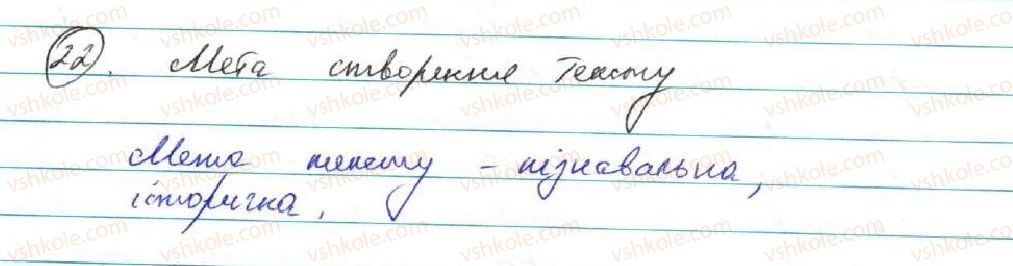 22. Мета створення тексту
Мета тексту - пізнавальна,
історична.